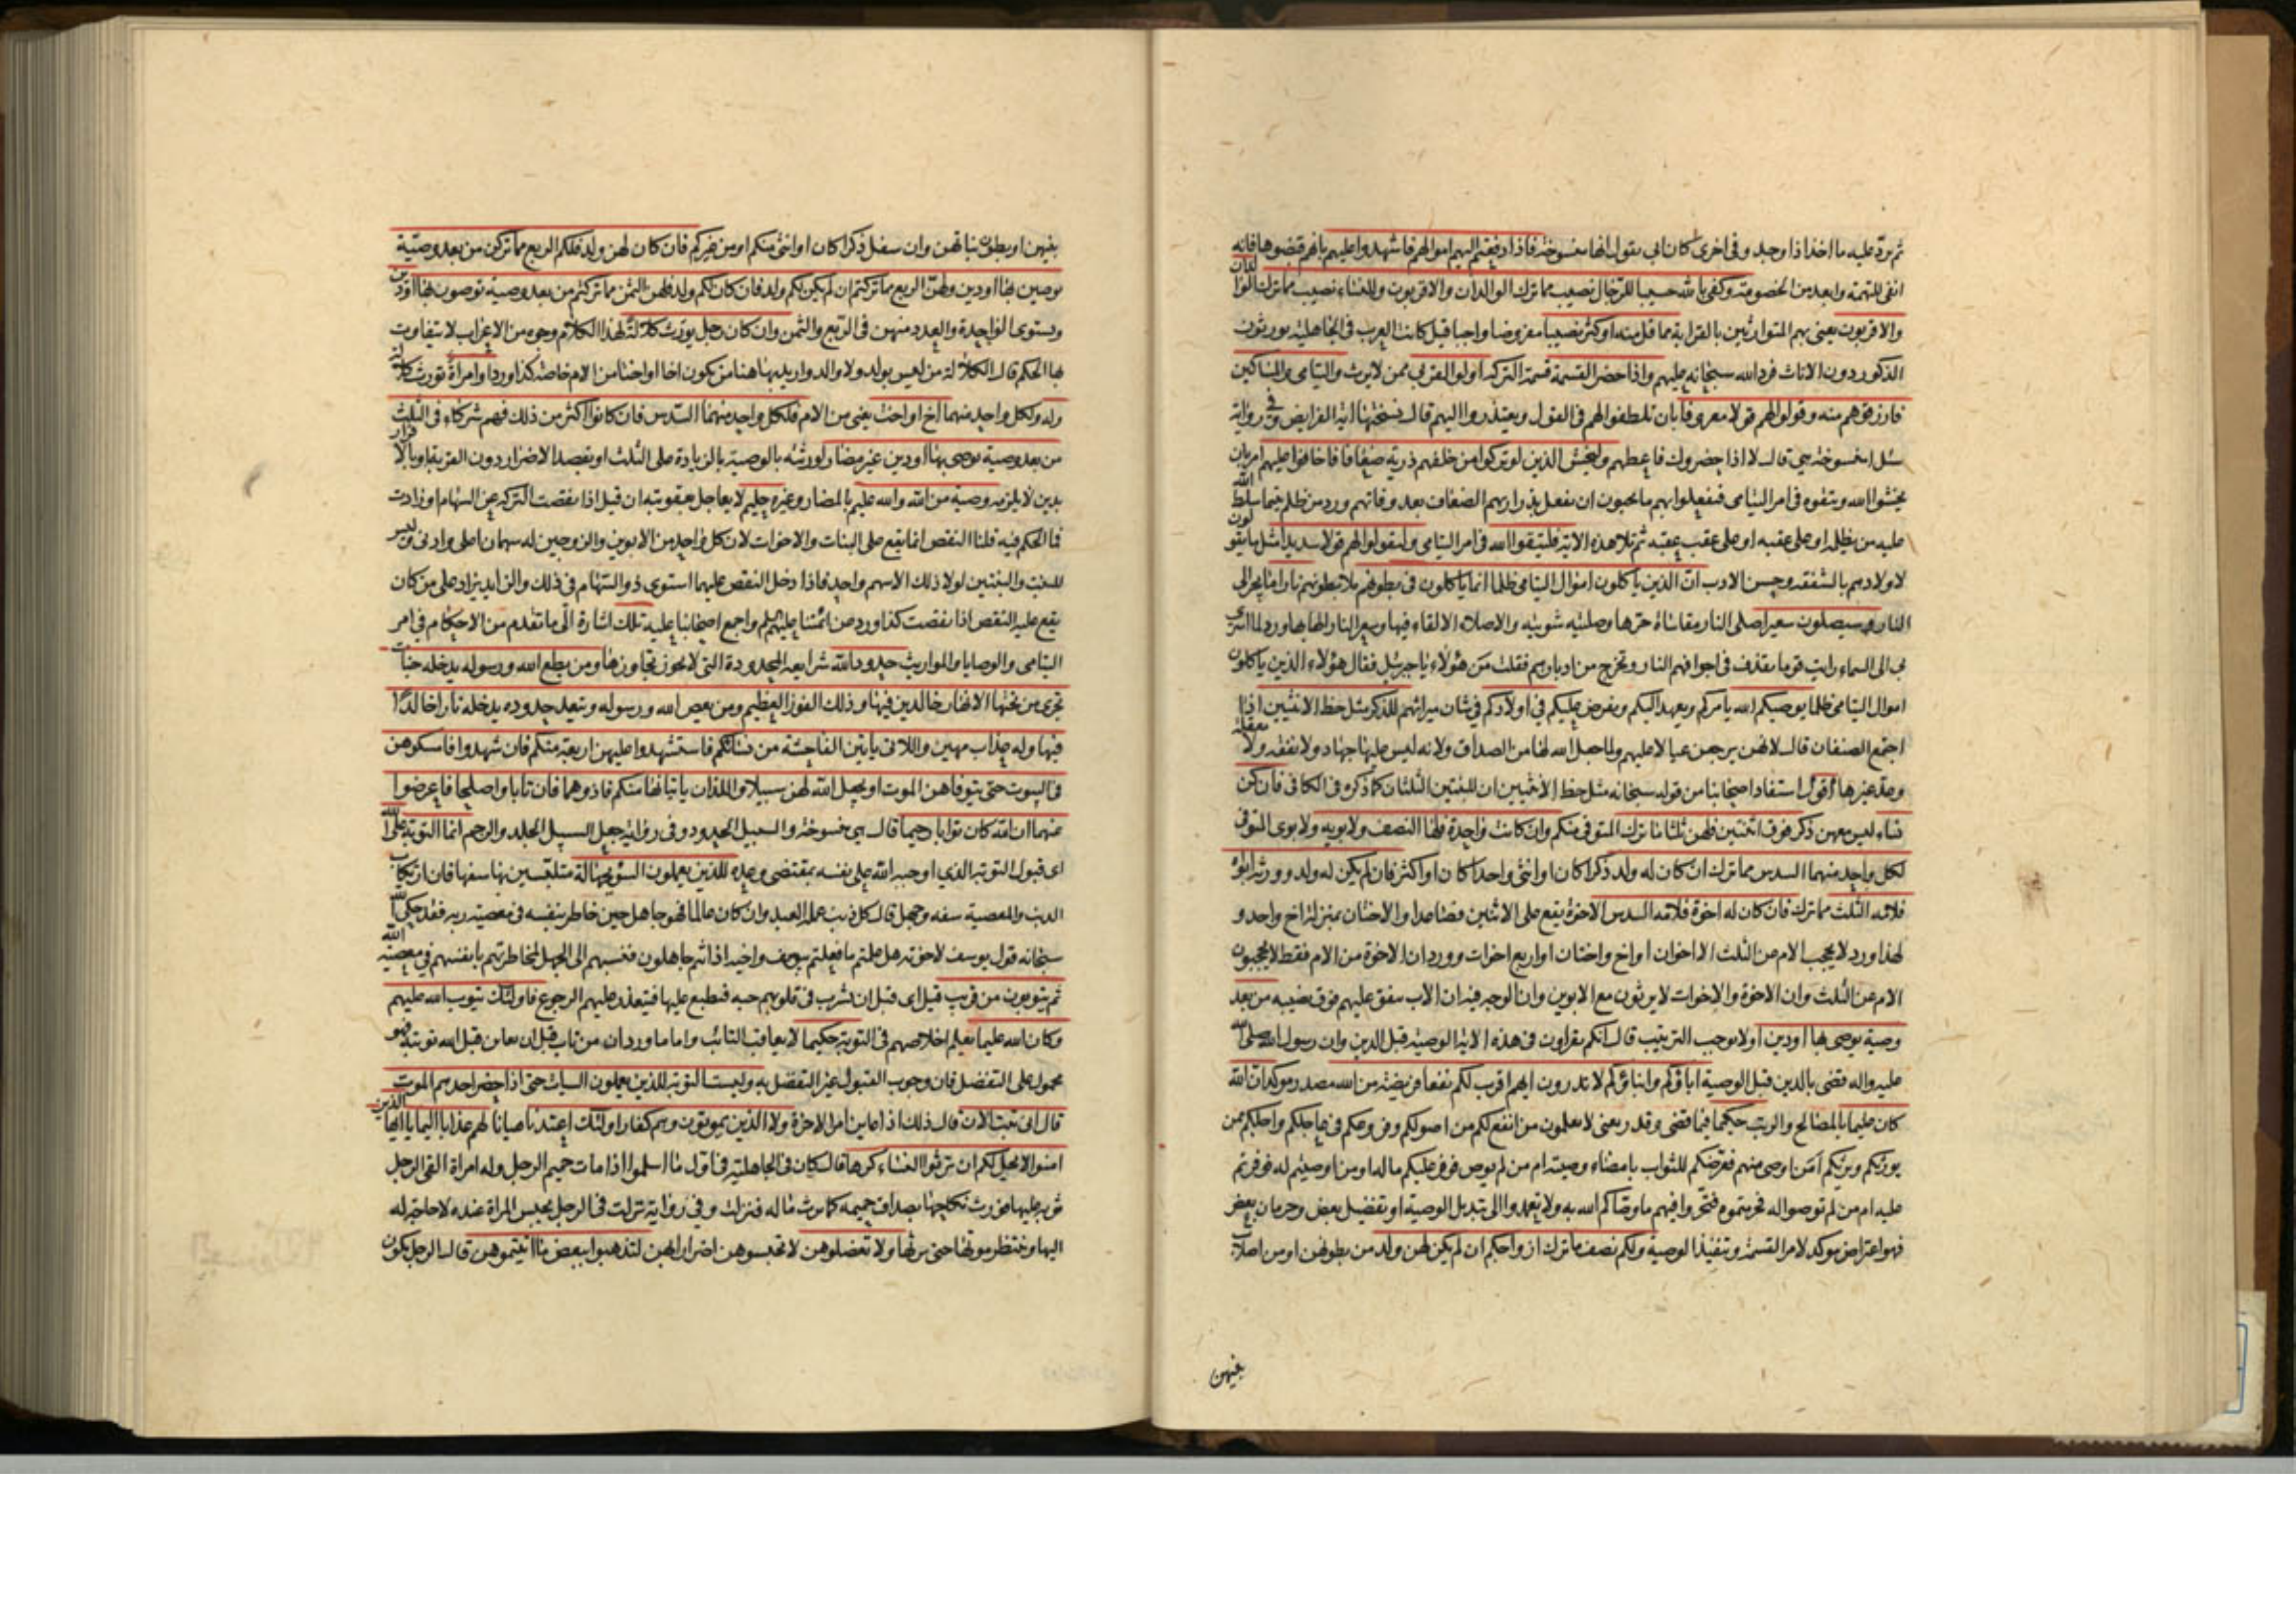 ثم يردّ عليه ما اخذ اذا وجد وفي اخرى كان ابي يقول انها منسوخة فاذا دفعتم اليهم اموالهم فاشهدوا عليهم بانهم قبضوها فانه
انفى للتهمة وابعد من الخصومة وكفى بالله حسيبا للرّجال نصيب مما ترك الوالدان والاقربون وللنساء نصيب مما ترك الوالدان
والاقربون يعني بهم المتوارثين بالقرابة مما قل منه او كثر نصيبا مفروضا واجبا قيل كانت العرب في الجاهلية يورثون
الذكور دون الاناث فرد الله سبحانه عليهم واذا حضر القسمة قسمة التركة اولوا القربى ممن لا يرث واليتامى والمساكين
فارزقوهم منه وقولوا لهم قولا معروفا بان تلطفوا لهم في القول ويعتذروا اليهم قال نسختها اية الفرايض وفي رواية
سئل امنسوخة هي قال لا اذا حضروك فاعطهم وليخش الذين لو تركوا من خلفهم ذرية ضعافا خافوا عليهم امر بان
يخشوا الله ويتقوه في امر اليتامى فيفعلوا بهم ما يحبون ان يفعل بذراريهم الضعاف بعد وفاتهم ورد من ظلم يتيما سلط الله
عليه من يظلمه او على عقبه او على عقب عقبه ثم تلا هذه الاية فليتقوا الله في امر اليتامى وليقولوا لهم قولا سديدا مثل ما يقولون
لاولادهم بالشفقة وحسن الادب ان الذين ياكلون اموال اليتامى ظلما انما ياكلون في بطونهم ملا بطونهم نارا ما يجر الى
النار وسيصلون سعيرا صلى النار مقاساة حرّها وصليته شويته والاصلاء الالقاء فيها وسعير النار الهابها ورد لما اسرى
بي الى السماء رايت قوما يقذف في اجوافهم النار وتخرج من ادبارهم فقلت من هؤلاء يا جبرئيل فقال هؤلاء الذين ياكلون
اموال اليتامى ظلما يوصيكم الله يامركم ويعهد اليكم ويفرض عليكم في اولادكم في شان ميراثهم للذكر مثل حظ الانثيين اذا
اجتمع الصنفان قال لانهن يرجعن عيالا عليهم ولما جعل الله لها من الصداق ولانه ليس عليها جهاد ولا نفقة ولا معقلة
وعدّ غيرها اقول استفاد اصحابنا من قوله سبحانه مثل حظ الانثيين ان للبنتين الثلثان كما ذكره في الكافي فان كن
نساء ليس معهن ذكر فوق اثنتين فلهن ثلثا ما ترك المتوفى منكم وان كانت واحدة فلها النصف ولابويه ولابوى المتوفى
لكل واحد منهما السدس مما ترك ان كان له ولد ذكرا كان او انثى واحدا كان او اكثر فان لم يكن له ولد وورثه ابواه
فلامه الثلث مما ترك فان كان له اخوة فلامه السدس الاخوة يقع على الاثنين فصاعدا والاختان بمنزلة اخ واحد و
لهذا ورد لا يحجب الام من الثلث الا اخوان او اخ واختان او اربع اخوات وورد ان الاخوة من الام فقط لا يحجبون
الام عن الثلث وان الاخوة والاخوات لا يرثون مع الابوين وان الوجه فيه ان الاب ينفق عليهم فوق نصيبه من بعد
وصية يوصى بها او دين او لا يوجب الترتيب قال انكم تقرءون في هذه الاية الوصية قبل الدين وان رسول الله صلى الله
عليه واله قضى بالدين قبل الوصية اباؤكم وابناؤكم لا تدرون ايهم اقرب لكم نفعا فريضة من الله مصدر مؤكد ان الله
كان عليما بالمصالح والرتب حكيما فيما قضى وقدر يعنى لا تعلمون من انفع لكم من اصولكم وفروعكم في عاجلكم واجلكم ممن
يورثكم ويرثكم امن اوصى منهم فعرّضكم للثواب بامضاء وصيته ام من لم يوص فوفر عليكم ماله او من اوصيتم له فوفرتم
عليه ام من لم توصوا له فحرمتموه فتحروا فيهم ما وصاكم الله به ولا تعمدوا الى تبديل الوصية او تفضيل بعض وحرمان بعض
فهو اعتراض مؤكد لامر القسمة وتنفيذ الوصية ولكم نصف ما ترك ازواجكم ان لم يكن لهن ولد من بطونهن او من اصلاب
بنيهن
بنيهن او بطون بناتهن وان سفل ذكرا كان او انثى منكم او من غيركم فان كان لهن ولد فلكم الربع مما تركن من بعد وصيّة
يوصين بها او دين ولهنّ الربع مما تركتم ان لم يكن لكم ولد فان كان لكم ولد فلهن الثمن مما تركتم من بعد وصية توصون بها او دين
ويستوى الواحدة والعدد منهن في الربع والثمن وان كان رجل يورث كلالة لهذا الكلام وجوه من الاعراب لا يتفاوت
بها الحكم قال الكلالة من ليس بولد ولا والد واريد بها هنا من يكون اخا او اختا من الام خاصة كذا ورد او امراة تورث كلالة
وله ولكل واحد منهما اخ او اخت يعنى من الام فلكل واحد منهما السّدس فان كانوا اكثر من ذلك فهم شركاء في الثلث
من بعد وصية يوصى بها او دين غير مضار لورثته بالوصية بالزيادة على الثلث او بقصد الاضرار دون القربة او بالاقرار
بدين لا يلزمه وصية من الله والله عليم بالمضار وغيره حليم لا يعاجل بعقوبته ان قيل اذا نقصت التركة عن السهام او زادت
فما الحكم فيه قلنا النقص انما يقع على البنات والاخوات لان كل واحد من الابوين والزوجين له سهمان اعلى وادنى وليس
للبنت والبنتين لولا ذلك الا سهم واحد فاذا دخل النقص عليهما استوى ذو السهام في ذلك والزايد يزاد على من كان
يقع عليه النقص اذا نقصت كذا ورد عن ائمتنا عليهم السلم واجمع اصحابنا عليه تلك اشارة الى ما تقدم من الاحكام في امر
اليتامى والوصايا والمواريث حدود الله شرايعه المحدودة التي لا يجوز تجاوزها ومن يطع الله ورسوله يدخله جنات
تجرى من تحتها الانهار خالدين فيها وذلك الفوز العظيم ومن يعص الله ورسوله ويتعد حدوده يدخله نارا خالدا
فيها وله عذاب مهين واللاتى ياتين الفاحشة من نسائكم فاستشهدوا عليهن اربعة منكم فان شهدوا فامسكوهن
في البيوت حتى يتوفاهن الموت او يجعل الله لهن سبيلا واللذان ياتيانها منكم فاذوهما فان تابا واصلحا فاعرضوا
عنهما ان الله كان توابا رحيما قال هي منسوخة والسبيل الحدود وفي رواية جعل السبيل الجلد والرجم انما التوبة على الله
اى قبول التوبة الذي اوجبه الله على نفسه بمقتضى وعده للذين يعملون السوء بجهالة متلبسين بها سفها فان ارتكاب
الذنب والمعصية سفه وجهل قال كل ذنب عمله العبد وان كان عالما فهو جاهل حين خاطر بنفسه في معصية ربه فقد حكى الله
سبحانه قول يوسف لاخوته هل علمتم ما فعلتم بيوسف واخيه اذ انتم جاهلون فنسبهم الى الجهل لمخاطرتهم بانفسهم في معصية الله
ثم يتوبون من قريب قيل اى قبل ان يشرب في قلوبهم حبه فيطبع عليها فيتعذر عليهم الرجوع فاولئك يتوب الله عليهم
وكان الله عليما يعلم اخلاصهم في التوبة حكيما لا يعاقب التائب واما ما ورد ان من تاب قبل ان يعاين قبل الله توبته فهو
محمول على التفضل فان وجوب القبول غير التفضل به وليست التوبة للذين يعملون السيات حتى اذا حضر احدهم الموت
قال انى تبت الان قال ذلك اذا عاين امر الاخرة ولا الذين يموتون وهم كفار اولئك اعتدنا هيانا لهم عذابا اليما يا ايها الذين
امنوا لا يحل لكم ان ترثوا النساء كرها قال كان في الجاهلية في اول ما اسلموا اذا مات حميم الرجل وله امراة القى الرجل
ثوبه عليها فورث نكاحها بصداق حميمه كما يرث ماله فنزلت وفي رواية نزلت في الرجل يحبس المراة عنده لا حاجة له
اليها وينتظر موتها حتى يرثها ولا تعضلوهن لا تحبسوهن اضرارا بهن لتذهبوا ببعض ما اتيتموهن قال الرجل يكون